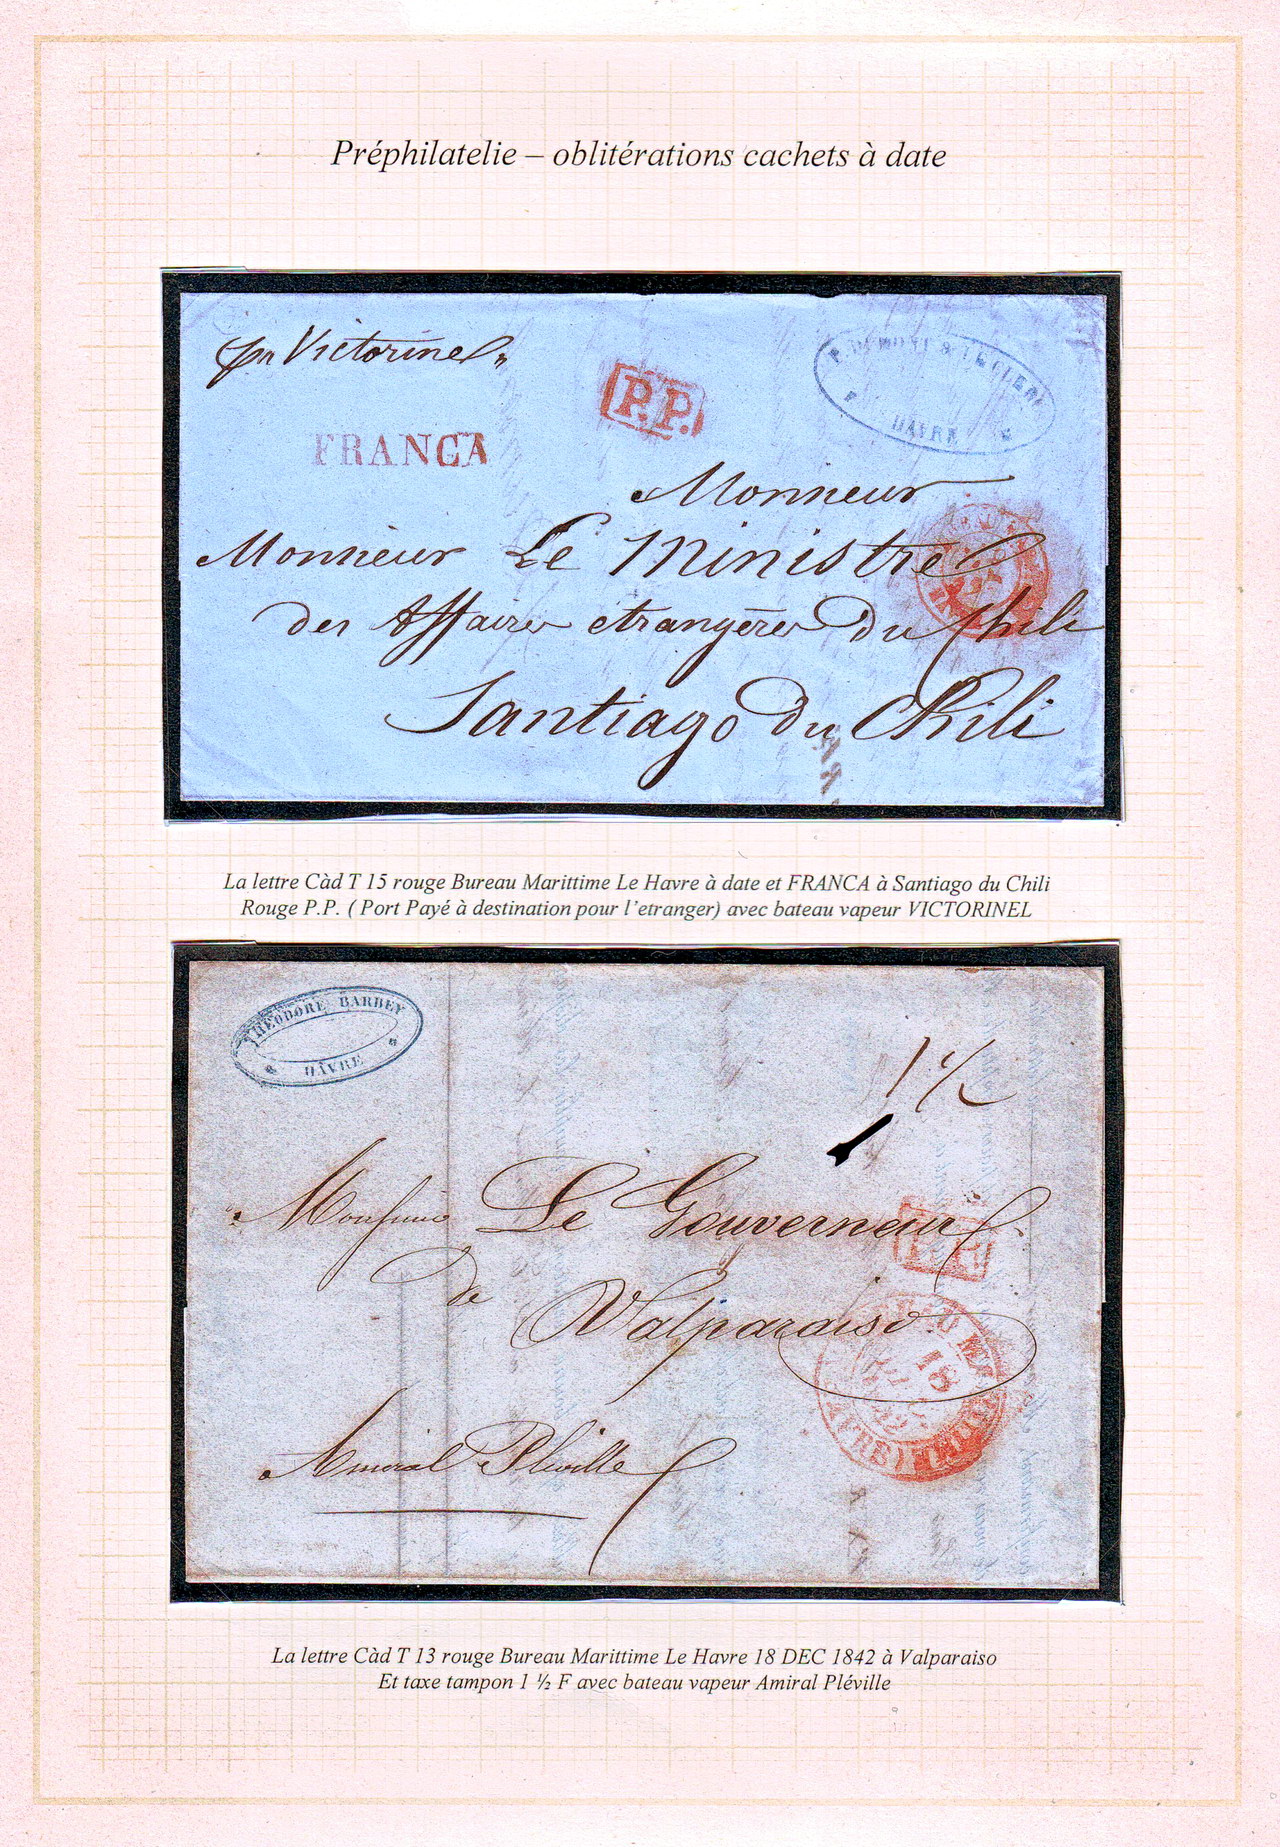 Préphilatelie – oblitérations cachets à date
pr Victorine
P.P.
HÂVRE
FRANCA
Monsieur
Monsieur Le Ministre
des Affaires etrangères du Chili
Santiago du Chili
La lettre Càd T 15 rouge Bureau Marittime Le Havre à date et FRANCA à Santiago du Chili
Rouge P.P. ( Port Payé à destination pour l’etranger) avec bateau vapeur VICTORINEL
THÉODORE BARBEY
HÂVRE
1 ½
Monsieur Le Gouverneur
P.P.
de Valparaiso
18
Amiral Pléville
La lettre Càd T 13 rouge Bureau Marittime Le Havre 18 DEC 1842 à Valparaiso
Et taxe tampon 1 ½ F avec bateau vapeur Amiral Pléville